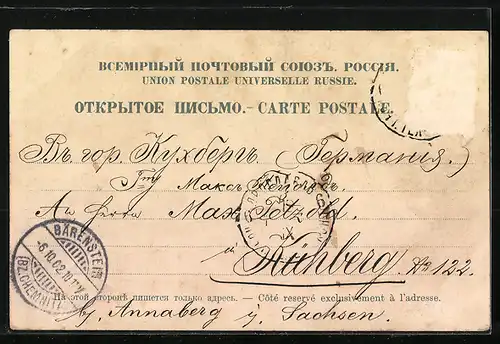 ВСЕМІРНЫЙ ПОЧТОВЫЙ СОЮЗЪ. РОССІЯ.
UNION POSTALE UNIVERSELLE RUSSIE.
ОТКРЫТОЕ ПИСЬМО.-CARTE POSTALE.
Въ гор. Кухбергъ (Германия.)
Гну Максъ
An Herrn Max Petzold.
Kühberg. № 122.
BÄRENSTEIN
-6.10.02.
(BZ.CHEMNITZ)
На этой сторонѣ пишется только адресъ. — Côté reservé exclusivement à l'adresse.
b/ Annaberg i/ Sachsen.